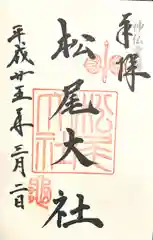 奉拝
松尾大社
平成廿五年三月二日